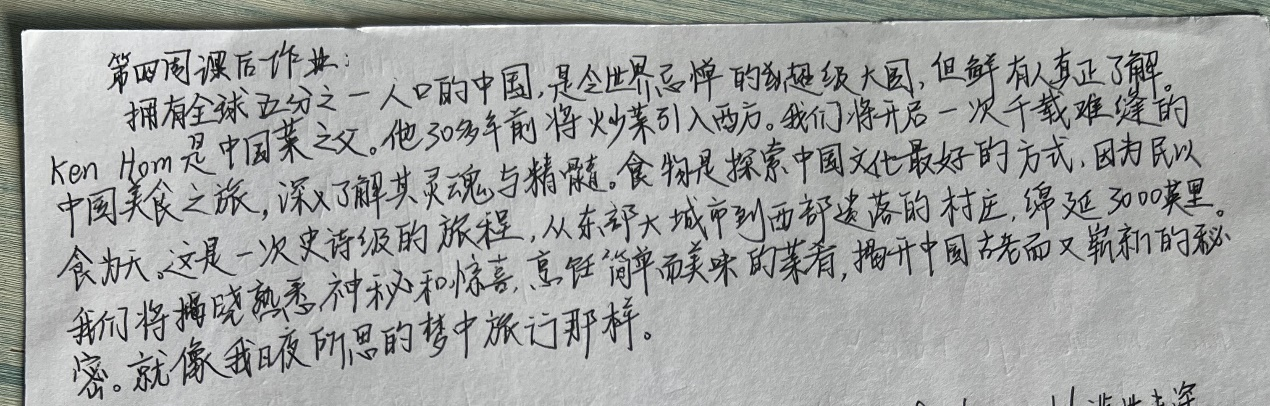 第四周课后作业：
拥有全球五分之一人口的中国，是令世界忌惮的超级大国，但鲜有人真正了解。
Ken Hom是中国菜之父。他30多年前将炒菜引入西方。我们将开启一次千载难缝的
中国美食之旅，深入了解其灵魂与精髓。食物是探索中国文化最好的方式，因为民以
食为天。这是一次史诗级的旅程，从东部大城市到西部遗落的村庄，绵延3000英里。
我们将揭晓熟悉、神秘和惊喜，烹饪简单而美味的菜肴，揭开中国古老而又崭新的秘
密。就像我日夜所思的梦中旅行那样。